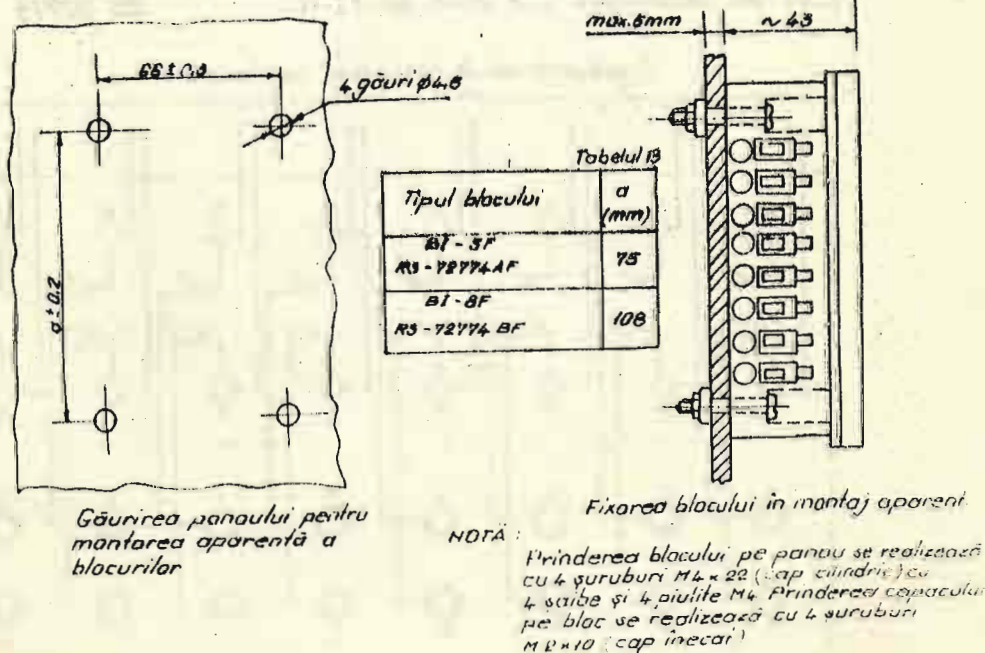 max. 5mm
~ 43
4 găuri φ4,8
Tabelul 13
Tipul blocului
a
(mm)
RS-72774 AF
75
BI-8F
RS-72774 BF
108
a ± 0.2
Găurirea panoului pentru
montarea aparentă a
blocurilor
Fixarea blocului în montaj aparent
NOTĂ :
Prinderea blocului pe panou se realizează
cu 4 șuruburi M4 x 22 (cap cilindric) cu
4 șaibe și 4 piulițe M4 Prinderea capacului
pe bloc se realizează cu 4 șuruburi
(cap înecat)